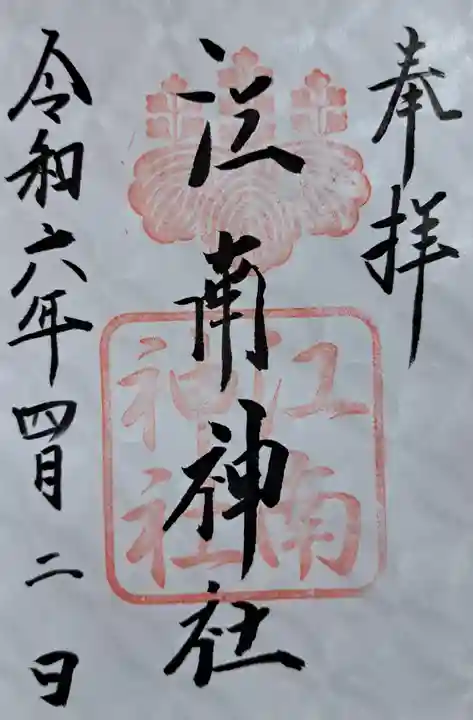 奉拝
江南神社
江南
神社
令和六年四月二日